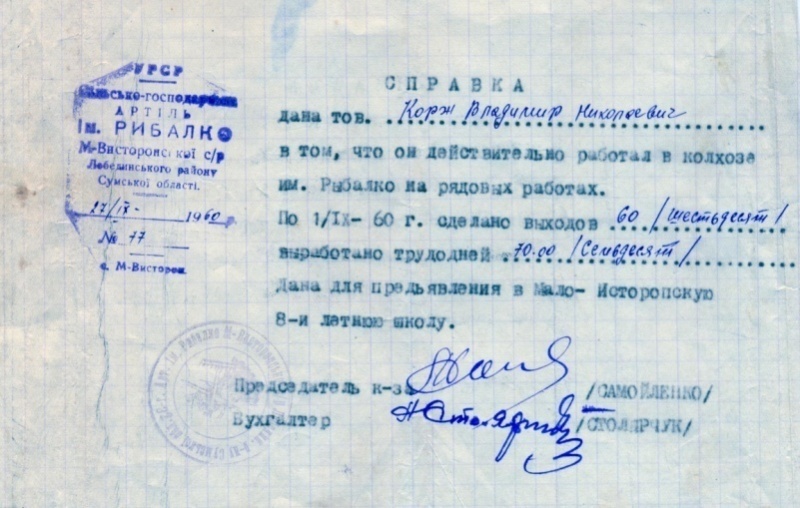 УРСР
Сільсько-господарська
АРТІЛЬ
Ім. РИБАЛКО
М-Висторонської с/р
Лебединського району
Сумської області.
27/ІХ- 1960
№ 77
с. М-Висторон.
СПРАВКА
дана тов. Корж Владимир Николаевич
в том, что он действительно работал в колхозе
им. Рыбалко на рядовых работах.
По 1/ІХ- 60 г. сделано выходов 60 /шестьдесят/
выработано трудодней 70.00 /Семьдесят/
Дана для предьявления в Мало- Исторопскую
8-и летнюю школу.
Председатель к-за /САМОЙЛЕНКО/
Бухгалтер Н Столярчук /СТОЛЯРЧУК/